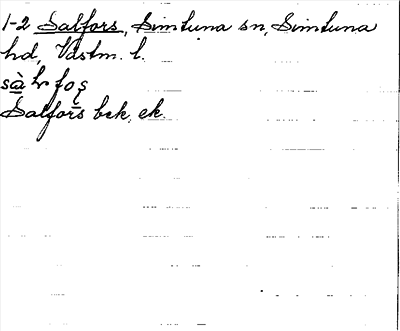 1-2 Salfors, Simtuna sn, Simtuna
hd, Västm. l.
Salfors bek, ek.